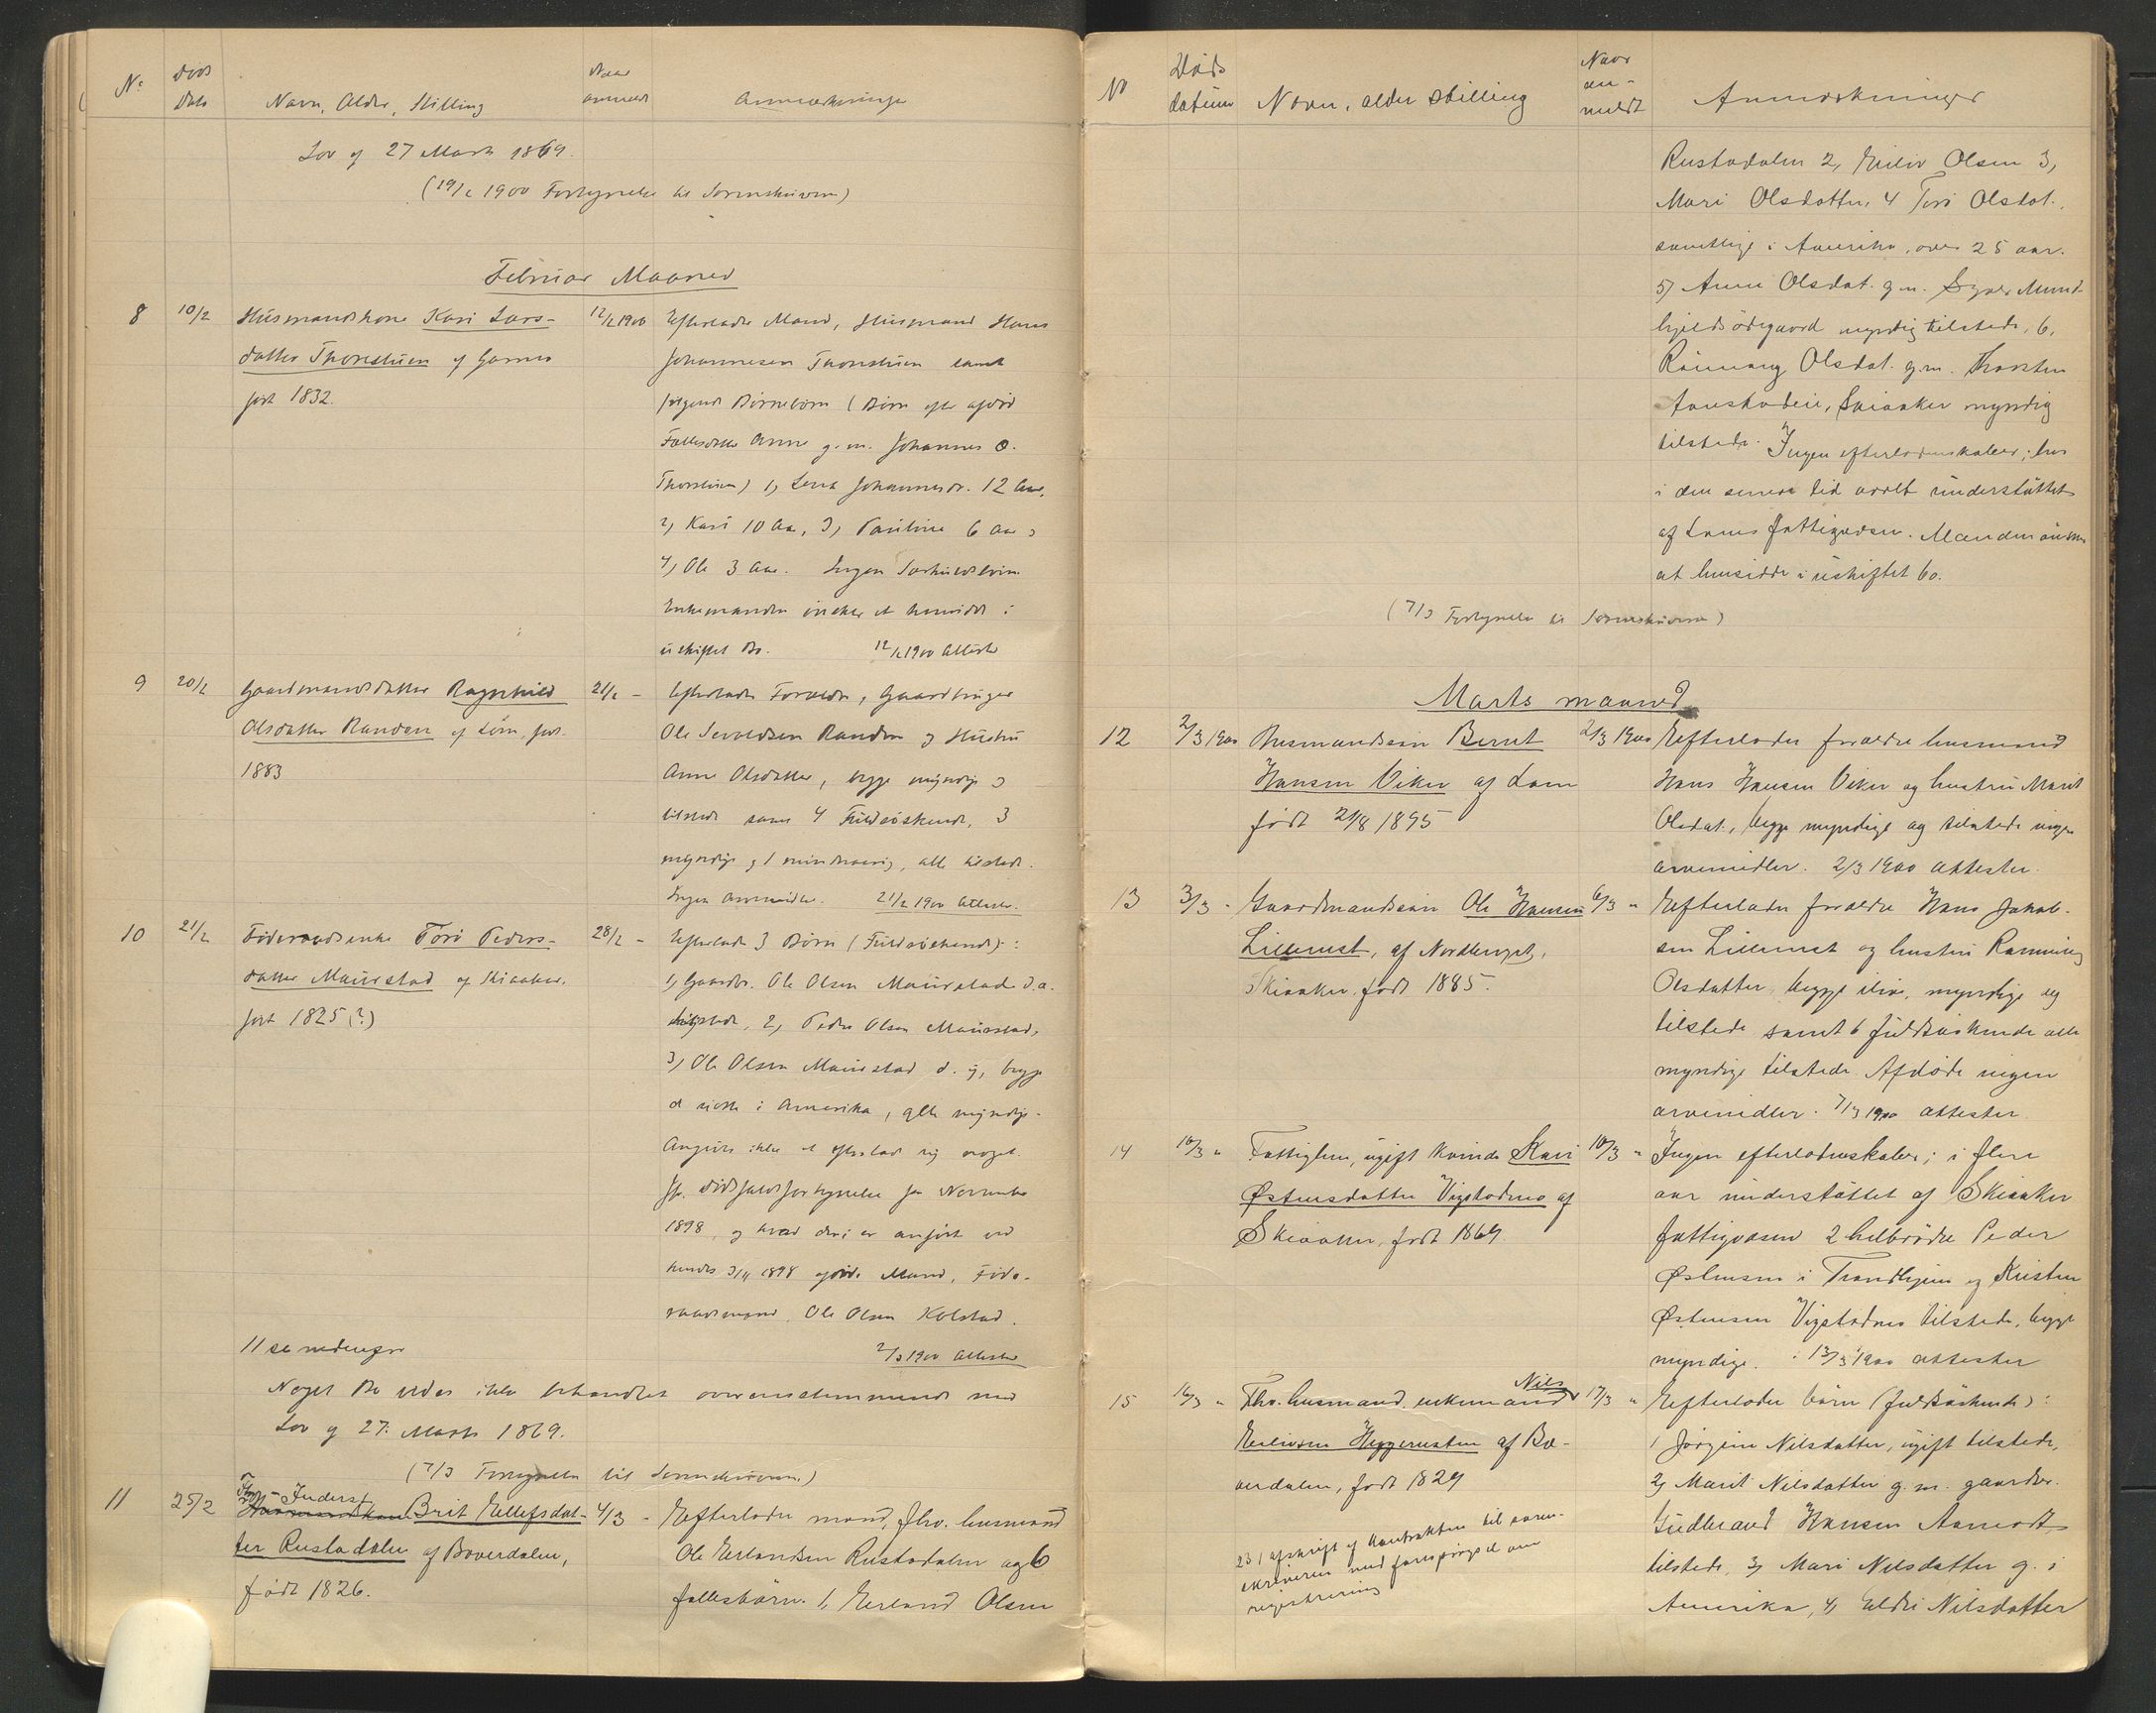 No
Døds
Dato
Navn, Alder, Stilling
Naar
anmeldt
Anmærkninger
Lov af 27 Marts 1869.
(19/2 1900 Fortegnelse til Sorenskriveren)
Februar Maaned
8 10/2 Husmandskone Kari Lars-
datter Thorestuen af Garmo
født 1832.
12/2 1900
Efterlader Mand, Husmand Hans
Johannesen Thorestuen samt
følgende Børnebørn (Børn efter afdød
Fællesdatter Anne g. m. Johannes O.
Thorestuen) 1, Lena Johannesdr. 12 Aar,
2, Kari 10 Aar, 3, Pauline 6 Aar og
4, Ole 3 Aar. Ingen Særkuldsbørn.
Enkemanden ønsker at hensidde i
uskiftet Bo. 12/2 1900 Attester
9 20/2 Gaardmandsdatter Ragnhild
Olsdatter Randen af Lom, født
1883
21/2 -
Efterlader Forældre, Gaardbruger
Ole Syvoldsen Randen og Hustru
Anne Olsdatter, begge myndige og
tilstede samt 4 Fuldsøskende, 3
myndige og 1 mindreaarig, alle tilstede.
Ingen Arvemidler. 21/2 1900 Attester.
10 21/2 Føderaadsenke Torø Peders-
datter Maurstad af Skiaaker.
født 1825 (?)
28/2 -
Efterlader 3 Børn (Fuldsøskende):
1, Gaardbr. Ole Olsen Maurstad d. æ.
tilstede, 2, Peder Olsen Maurstad,
3, Ole Olsen Maurstad d. y., begge
de sidste i Amerika, alle myndige.
Angives ikke at efterlade sig noget.
Jfr. Dødsfaldsfortegnelse for November
1898, og hvad deri er anført ved
hendes 3/11 1898 afdøde Mand, Føde-
raadsmand Ole Olsen Kolstad.
2/3 1900 Attester
11 se nedenfor
Noget Bo vides ikke behandlet overensstemmende med
Lov af 27. Marts 1869.
(7/3 Fortegnelse til Sorenskriveren)
Fhv. Inderst
11 25/2 Husmandskone Brit Ellefsdat-
ter Rustadalen af Bøverdalen,
født 1826.
4/3 -
Efterlader mand, fhv. husmand
Ole Erlandsen Rustadalen og 6
fællesbørn. 1, Erland Olsen
No
Døds
datum
Navn, alder stilling
Naar
an-
meldt
Anmærkninger
Rustadalen 2, Eilev Olsen 3,
Mari Olsdatter, 4 Torø Olsdat.,
samtlige i Amerika, over 25 aar.
5, Anne Olsdat. g. m. Syver Mund-
hjeldsødegaard myndig tilstede, 6,
Rønnaug Olsdat. g. m. Thorsten
Aanstadeie, Skiaaker myndig
tilstede. Ingen efterladenskaber; har
i den senere tid været understøttet
af Loms fattigvæsen. Manden ønsker
at hensidde i uskiftet bo.
(7/3 Fortegnelse til Sorenskriveren)
Marts maaned
12 2/3 1900 Husmandssøn Bernt
Hansen Viker af Lom
født 21/8 1895
2/3 1900
Efterlader forældre husmand
Hans Hansen Viker og hustru Marit
Olsdat., begge myndige og tilstede ingen
arvemidler. 2/3 1900 attester.
13 3/3 - Gaardmandssøn Ole Hansen
Lillerust, af Nordberget,
Skiaaker, født 1885.
6/3 "
Efterlader forældre Hans Jakob-
sen Lillerust og hustru Rønnaug
Olsdatter, begge ilive, myndige og
tilstede samt 6 fuldsøskende alle
myndige tilstede. Afdøde ingen
arvemidler. 7/3 1900 attester
14 10/3 " Fattiglem, ugift kvinde Kari
Østensdatter Vigstadmo af
Skiaaker, født 1869
10/3 "
Ingen efterladenskaber; i flere
aar understøttet af Skiaaker
fattigvæsen 2 helbrødre Peder
Østensen i Trondhjem og Kristen
Østensen Vigstadmo tilstede, begge
myndige. 13/3 1900 attester
15 16/3 " Fhv. husmand enkemand Nils
Eilivsen Heggerusten af Bø-
verdalen, født 1829
17/3 "
23/ afskrift af kontrakten til soren-
skriveren med forespørgsel om
registrering
Efterlader børn (fuldsøskende):
1 Jørgine Nilsdatter, ugift tilstede,
2, Marit Nilsdatter g. m. gaardbr.
Gudbrand Hansen Aamodt
tilstede, 3, Mari Nilsdatter g. i
Amerika, 4, Eldri Nilsdatter